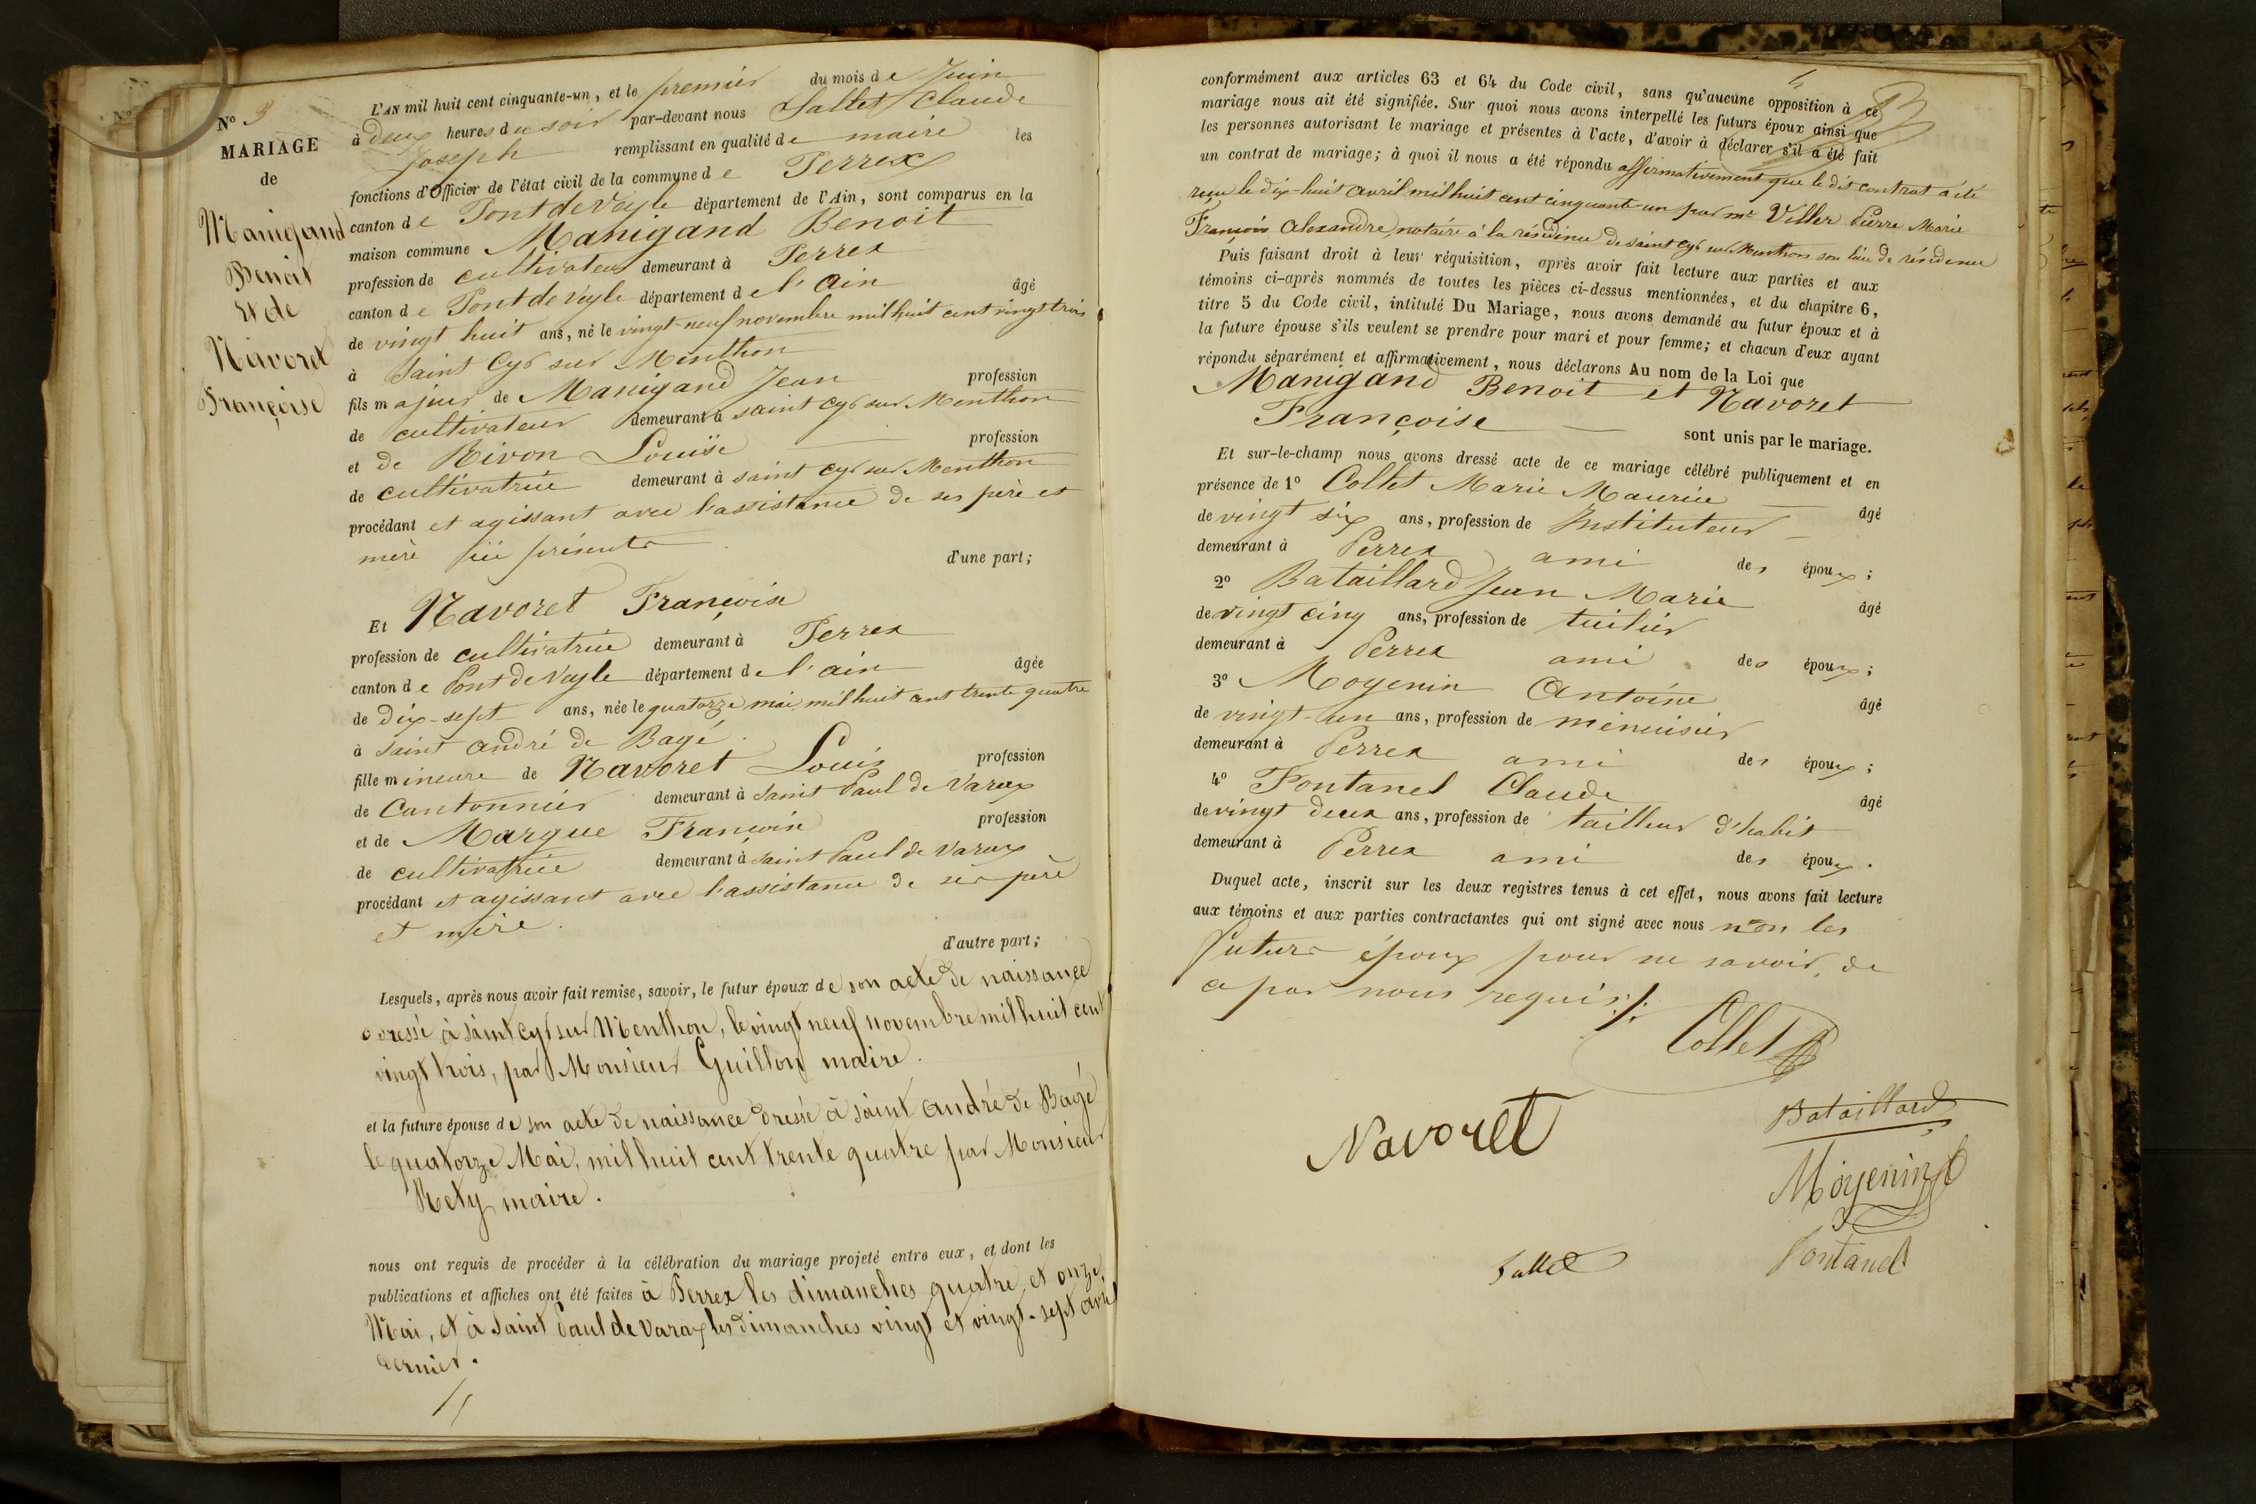 N° 3
MARIAGE
de
Manigand
Benoit
Et de
Navoret
Françoise
L'AN mil huit cent cinquante-un, et le premier du mois de Juin
à deux heures du soir par-devant nous Sallet Claude
Joseph remplissant en qualité de maire les
fonctions d'Officier de l'état civil de la commune de Perrex
canton de Pont de Veyle département de l'Ain, sont comparus en la
maison commune Manigand Benoit
profession de cultivateur demeurant à Perrex
canton de Pont de Veyle département de l'Ain âgé
de vingt huit ans, né le vingt-neuf novembre mil huit cent vingt trois
à Saint Cyr sur Menthon
fils majeur de Manigand Jean profession
de cultivateur demeurant à saint Cyr sur Menthon
et de Rivon Louise profession
de cultivatrice demeurant à saint Cyr sur Menthon
procédant et agissant avec l'assistance de ses père et
mère ici présents
d'une part;
Et Navoret Françoise
profession de cultivatrice demeurant à Perrex
canton de Pont de Veyle département de l'ain âgée
de dix-sept ans, née le quatorze mai mil huit cent trente quatre
à Saint André de Bagé
fille mineure de Navoret Louis profession
de Cantonnier demeurant à Saint Paul de Varax
et de Margue Françoise profession
de cultivatrice demeurant à Saint Paul de Varax
procédant et agissant avec l'assistance de ses père
et mère.
d'autre part;
Lesquels, après nous avoir fait remise, savoir, le futur époux de son acte de naissance
dressé à saint Cyr sur Menthon, le vingt neuf novembre mil huit cent
vingt trois, par Monsieur Guillon maire.
et la future épouse de son acte de naissance dressé à saint andré de Bagé
le quatorze Mai, mil huit cent trente quatre par Monsieur
Rety maire.
nous ont requis de procéder à la célébration du mariage projeté entre eux, et dont les
publications et affiches ont été faites à Perrex les dimanches quatre, et onze,
Mai, et à Saint Paul de Varax les dimanches vingt et vingt-sept avril
dernier.
conformément aux articles 63 et 64 du Code civil, sans qu'aucune opposition à ce
mariage nous ait été signifiée. Sur quoi nous avons interpellé les futurs époux ainsi que
les personnes autorisant le mariage et présentes à l'acte, d'avoir à déclarer s'il a été fait
un contrat de mariage; à quoi il nous a été répondu affirmativement que le dit contrat a été
reçu le dix-huit avril mil huit cent cinquante un par Mr Viller Pierre Marie
François Alexandre notaire à la résidence de saint Cyr sur Menthon son lieu de résidence
Puis faisant droit à leur réquisition, après avoir fait lecture aux parties et aux
témoins ci-après nommés de toutes les pièces ci-dessus mentionnées, et du chapitre 6,
titre 5 du Code civil, intitulé Du Mariage, nous avons demandé au futur époux et à
la future épouse s'ils veulent se prendre pour mari et pour femme; et chacun d'eux ayant
répondu séparément et affirmativement, nous déclarons Au nom de la Loi que
Manigand Benoit et Navoret
Françoise sont unis par le mariage.
Et sur-le-champ nous avons dressé acte de ce mariage célébré publiquement et en
présence de 1° Collet Marie Maurice âgé
de vingt six ans, profession de Instituteur
demeurant à Perrex ami des époux;
2° Bataillard Jean Marie âgé
de vingt cinq ans, profession de tuilier
demeurant à Perrex ami des époux;
3° Moyenin Antoine âgé
de vingt-un ans, profession de menuisier
demeurant à Perrex ami des époux;
4° Fontanel Claude âgé
de vingt deux ans, profession de tailleur d'habit
demeurant à Perrex ami des époux.
Duquel acte, inscrit sur les deux registres tenus à cet effet, nous avons fait lecture
aux témoins et aux parties contractantes qui ont signé avec nous non les
futurs époux pour ne savoir, de
ce par nous requis./.
Collet
Navoret
Bataillard
Moyenin
Sallet
Fontanel